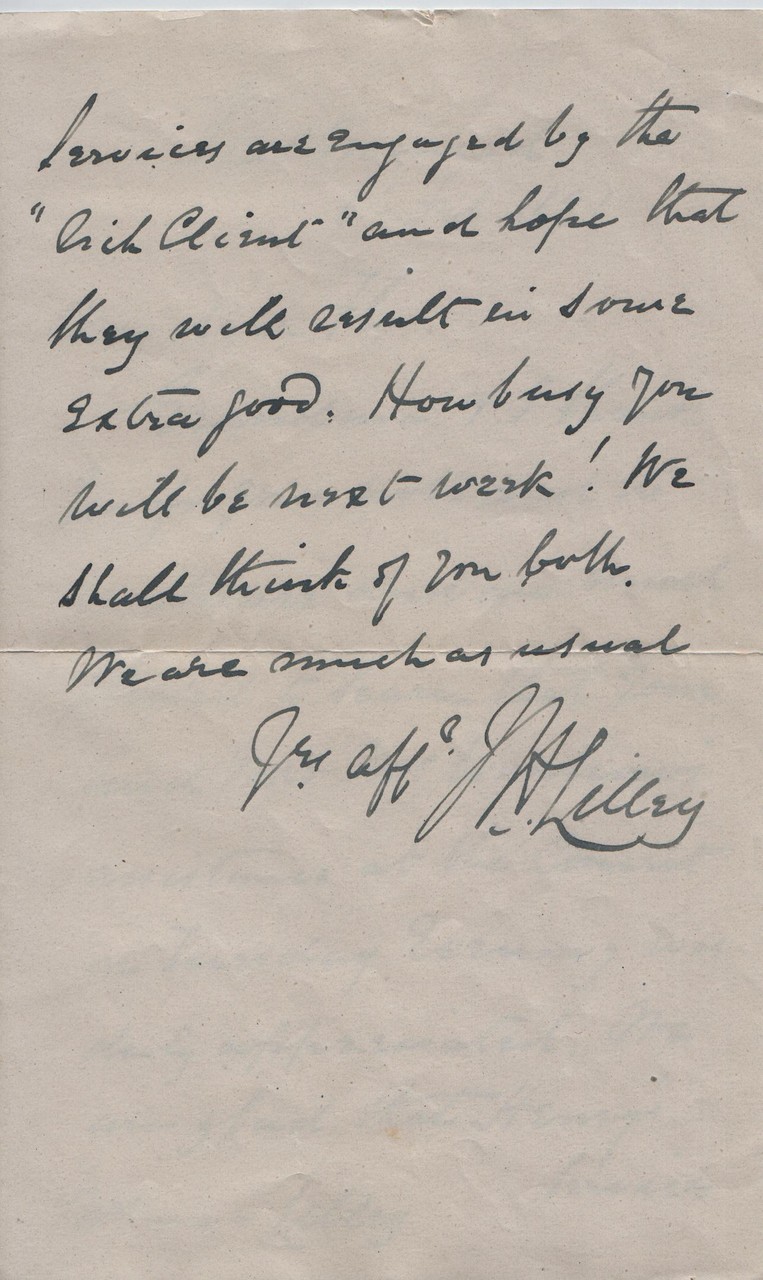 Services are engaged by the
" Client" and hope that
they will result in some
extra good. How busy you
will be next week! We
shall think of you both.
We are much as usual
Yrs. affe. J H Lilley